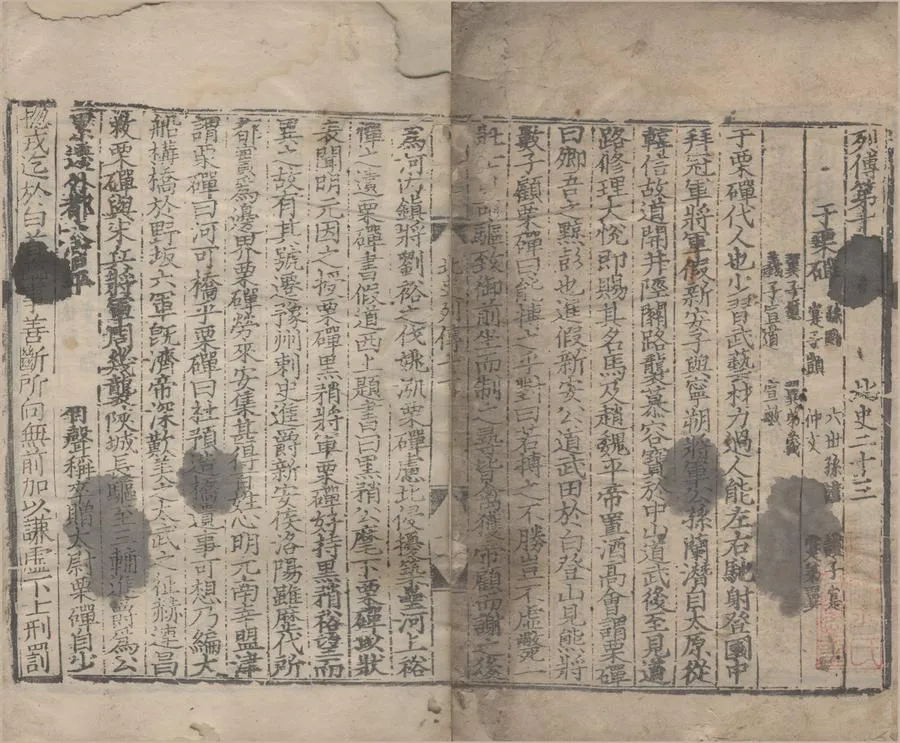 列傳第十 北史二十三
于栗磾 孫勁 六世孫謹 謹子寔
翼子璽 寔子顗 仲文 翼弟義 寔弟翼
義子宣道 宣敏
于栗磾代人也少習武藝材力過人能左右馳射登國中
拜冠軍將軍假新安子與寧朔將軍公孫蘭潛自太原從
韓信故道開井陘關路襲慕容寶於中山道武後至見道
路修理大悅即賜其名馬及趙魏平帝置酒高會謂栗磾
曰卿吾之黥彭也進假新安公道武田於白登山見熊將
數子顧栗磾曰能搏之乎對曰若搏之不勝豈不虛斃一
壯士 驅致御前坐而制之尋皆禽獲帝顧而謝之後
北史列傳十一
為河內鎮將劉裕之伐姚泓栗磾慮北侵擾築壘河上裕
憚之遺栗磾書假道西上題書曰黑矟公麾下栗磾以狀
表聞明元因之授栗磾黑矟將軍栗磾好持黑矟裕望而
異之故有其號遷豫州刺史進爵新安侯洛陽雖歷代所
都實為邊界栗磾勞來安集甚得百姓心明元南幸盟津
謂栗磾曰河可橋乎栗磾曰杜預造橋遺事可想乃編大
船構橋於野坂六軍旣濟帝深歎美之太武之征赫連昌
敕栗磾與宋兵將軍周幾襲陝城長驅至三輔進爵為公
累遷外都大官平 有聲稱卒贈太尉栗磾自少
總戎迄於白首 善斷所向無前加以謙虛下士刑罰